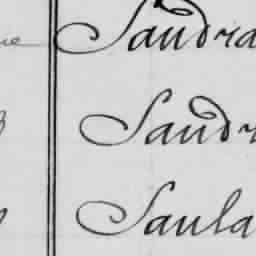 Saudra
Saudr
Saula